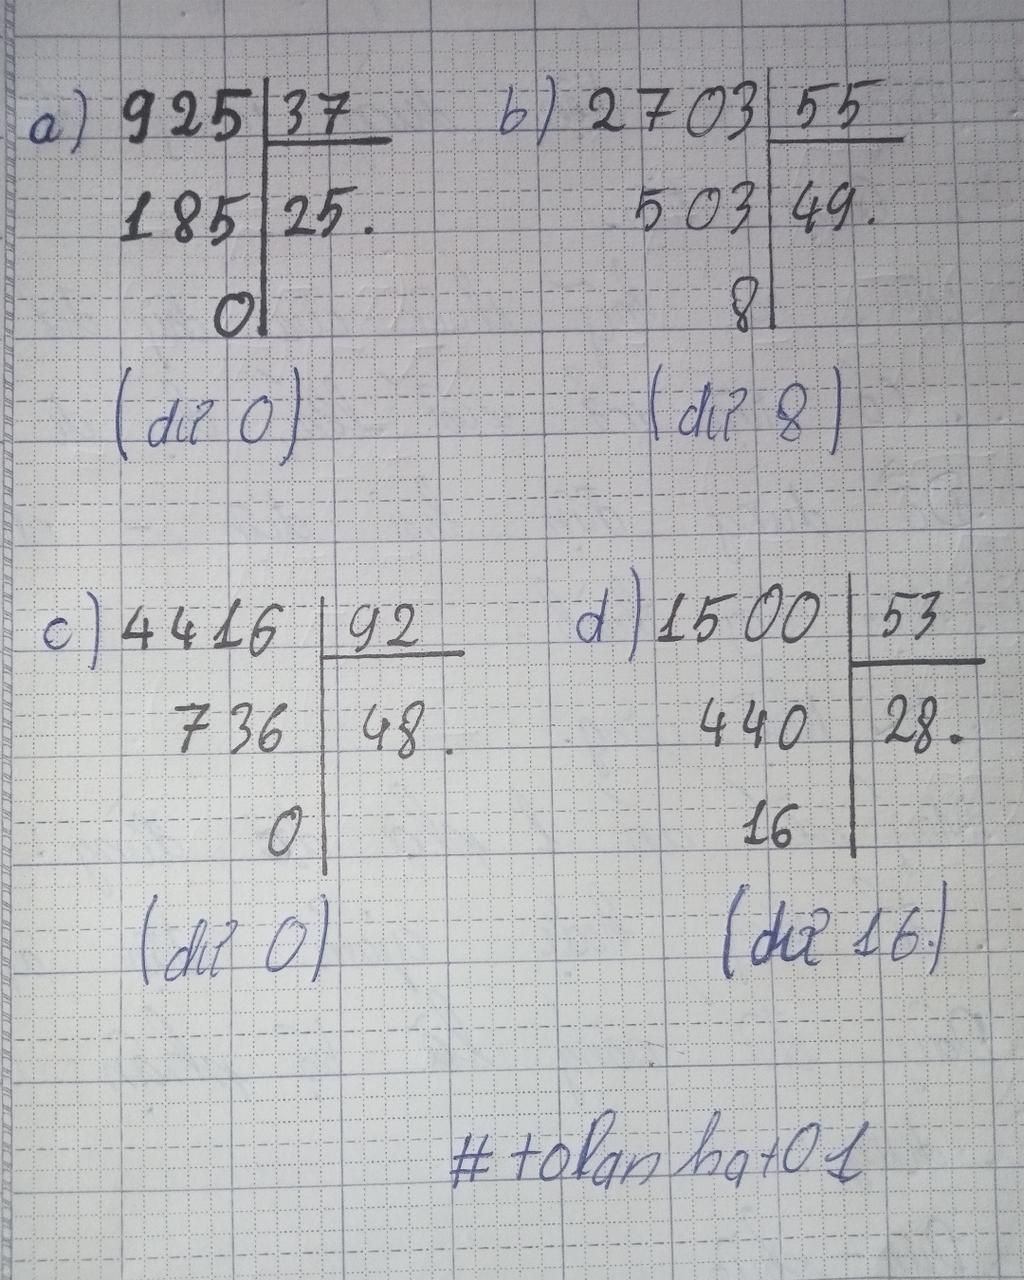 a) 925 37 b) 2703 55
185 25. 503 49.
0 8
(dư 0) (dư 8)
c) 4416 92 d) 1500 53
736 48. 440 28.
0 16
(dư 0) (dư 16)